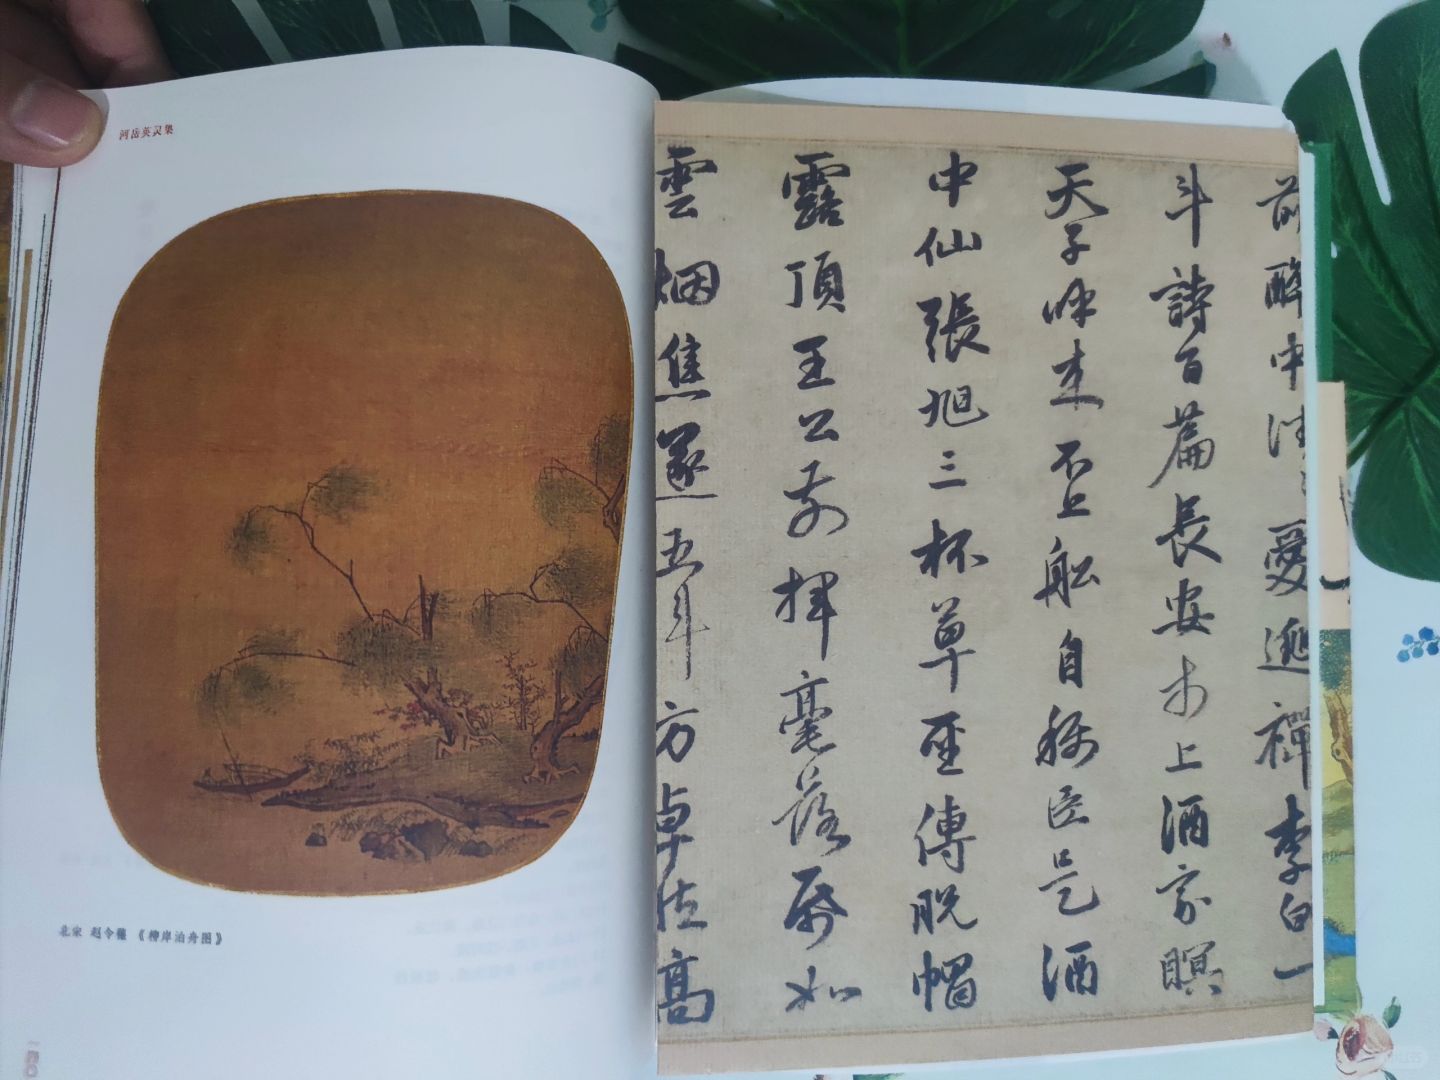 河岳英灵集
北宋 赵令穰 《柳岸泊舟图》
前醉中往〻愛逃禪李白一
斗詩百篇長安市上酒家瞑
天子呼来不上船自稱臣是酒
中仙張旭三杯草聖傳脱帽
露頂王公前揮毫落紙如
雲烟焦遂五斗方卓然高